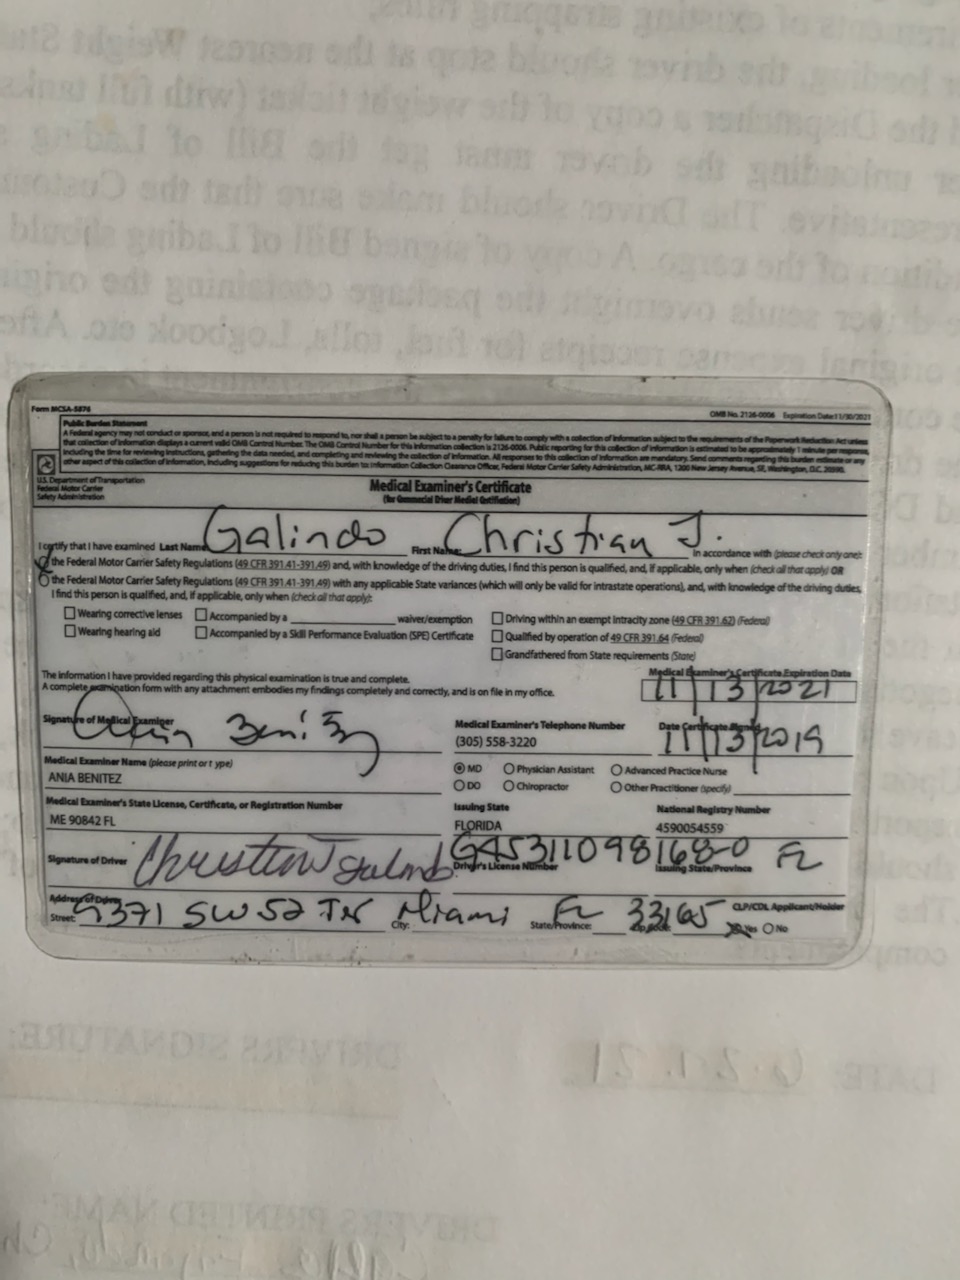 Form MCSA-5876
OMB No. 2126-0006 Expiration Date:11/30/2021
Public Burden Statement
A Federal agency may not conduct or sponsor, and a person is not required to respond to, nor shall a person be subject to a penalty for failure to comply with a collection of information subject to the requirements of the Paperwork Reduction Act unless
that collection of information displays a current valid OMB Control Number. The OMB Control Number for this information collection is 2126-0006. Public reporting for this collection of information is estimated to be approximately 1 minute per response,
including the time for reviewing instructions, gathering the data needed, and completing and reviewing the collection of information. All responses to this collection of information are mandatory. Send comments regarding this burden estimate or any
other aspect of this collection of information, including suggestions for reducing this burden to: Information Collection Clearance Officer, Federal Motor Carrier Safety Administration, MC-RRA, 1200 New Jersey Avenue, SE, Washington, D.C. 20590.
U.S. Department of Transportation
Federal Motor Carrier
Safety Administration
Medical Examiner's Certificate
(for Commercial Driver Medical Certification)
I certify that I have examined Last Name: Galindo First Name: Christian J. in accordance with (please check only one):
the Federal Motor Carrier Safety Regulations (49 CFR 391.41-391.49) and, with knowledge of the driving duties, I find this person is qualified, and, if applicable, only when (check all that apply) OR
the Federal Motor Carrier Safety Regulations (49 CFR 391.41-391.49) with any applicable State variances (which will only be valid for intrastate operations), and, with knowledge of the driving duties,
I find this person is qualified, and, if applicable, only when (check all that apply):
Wearing corrective lenses Accompanied by a waiver/exemption Driving within an exempt intracity zone (49 CFR 391.62) (Federal)
Wearing hearing aid Accompanied by a Skill Performance Evaluation (SPE) Certificate Qualified by operation of 49 CFR 391.64 (Federal)
Grandfathered from State requirements (State)
The information I have provided regarding this physical examination is true and complete.
A complete examination form with any attachment embodies my findings completely and correctly, and is on file in my office.
Medical Examiner's Certificate Expiration Date
11 13 2021
Signature of Medical Examiner
Ania Benitez
Medical Examiner's Telephone Number
(305) 558-3220
Date Certificate Signed
11 13 2019
Medical Examiner Name (please print or type)
ANIA BENITEZ
MD Physician Assistant Advanced Practice Nurse
DO Chiropractor Other Practitioner (specify)
Medical Examiner's State License, Certificate, or Registration Number
ME 90842 FL
Issuing State
FLORIDA
National Registry Number
4590054559
Signature of Driver Christian Galindo
Driver's License Number G45311098168-0
Issuing State/Province FL
Address of Driver
Street: 9371 SW 52 TR City: Miami State/Province: FL Zip Code: 33165
CLP/CDL Applicant/Holder
Yes No